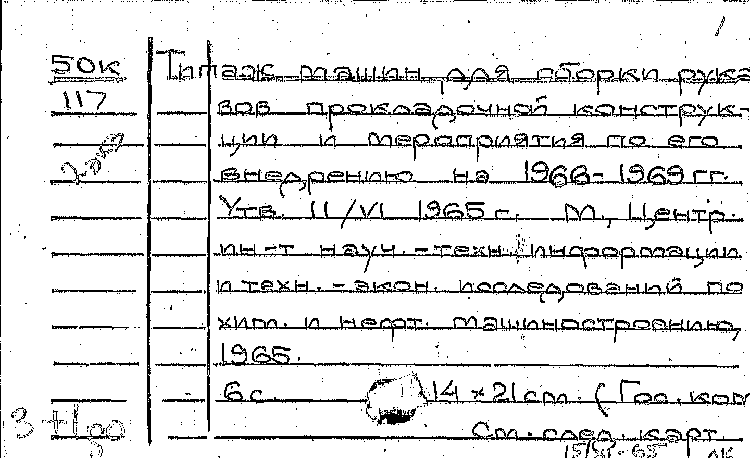 50к
117
2 экз
Типаж машин для сборки рука
вов прокладочной конструк-
ции и мероприятия по его
внедрению на 1966-1969 гг.
Утв. 11/VI 1965 г. М., Центр.
ин-т науч.-техн. информации
и техн.-экон. исследований по
хим. и нефт. машиностроению,
1965.
6 с. 14 × 21 см. (Гос. ком
См. след. карт.